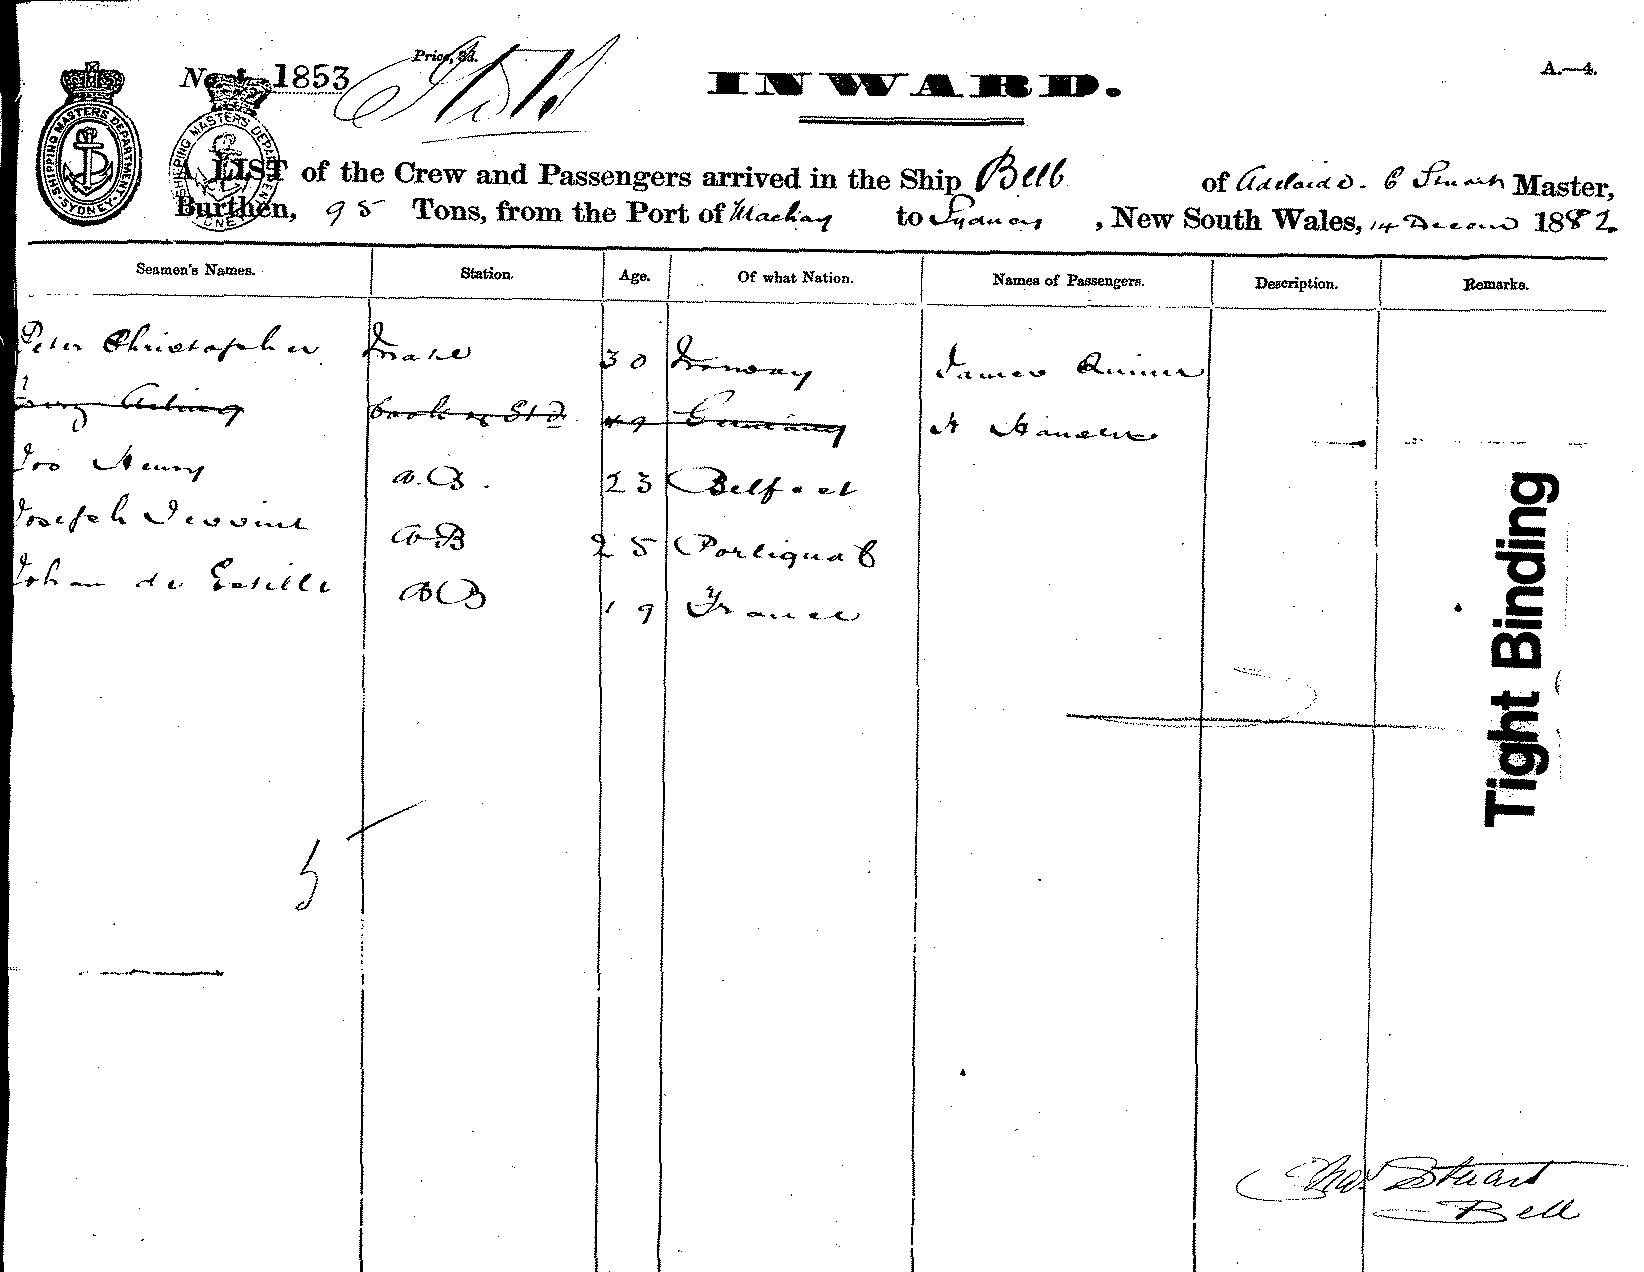 No. 1, 1853
Price, 3d.
INWARD.
A.—4.
SHIPPING MASTERS DEPARTMENT SYDNEY
SHIPPING MASTERS DEPAR
A LIST of the Crew and Passengers arrived in the Ship Bell of Adelaide. C Stuart Master,
Burthen, 95 Tons, from the Port of Mackay to Sydney, New South Wales, 14 Decem 1882
Seamen's Names. Station. Age. Of what Nation. Names of Passengers. Description. Remarks.
Peter Christopher Mate 30 Norway James
Cook & Std 49 Germany Hansen
Jos Henry A.B. 23 Belfast
Joseph AB 25 Portugual
Johan de AB 19 France
5
Tight Binding
Chas Stuart
Bell